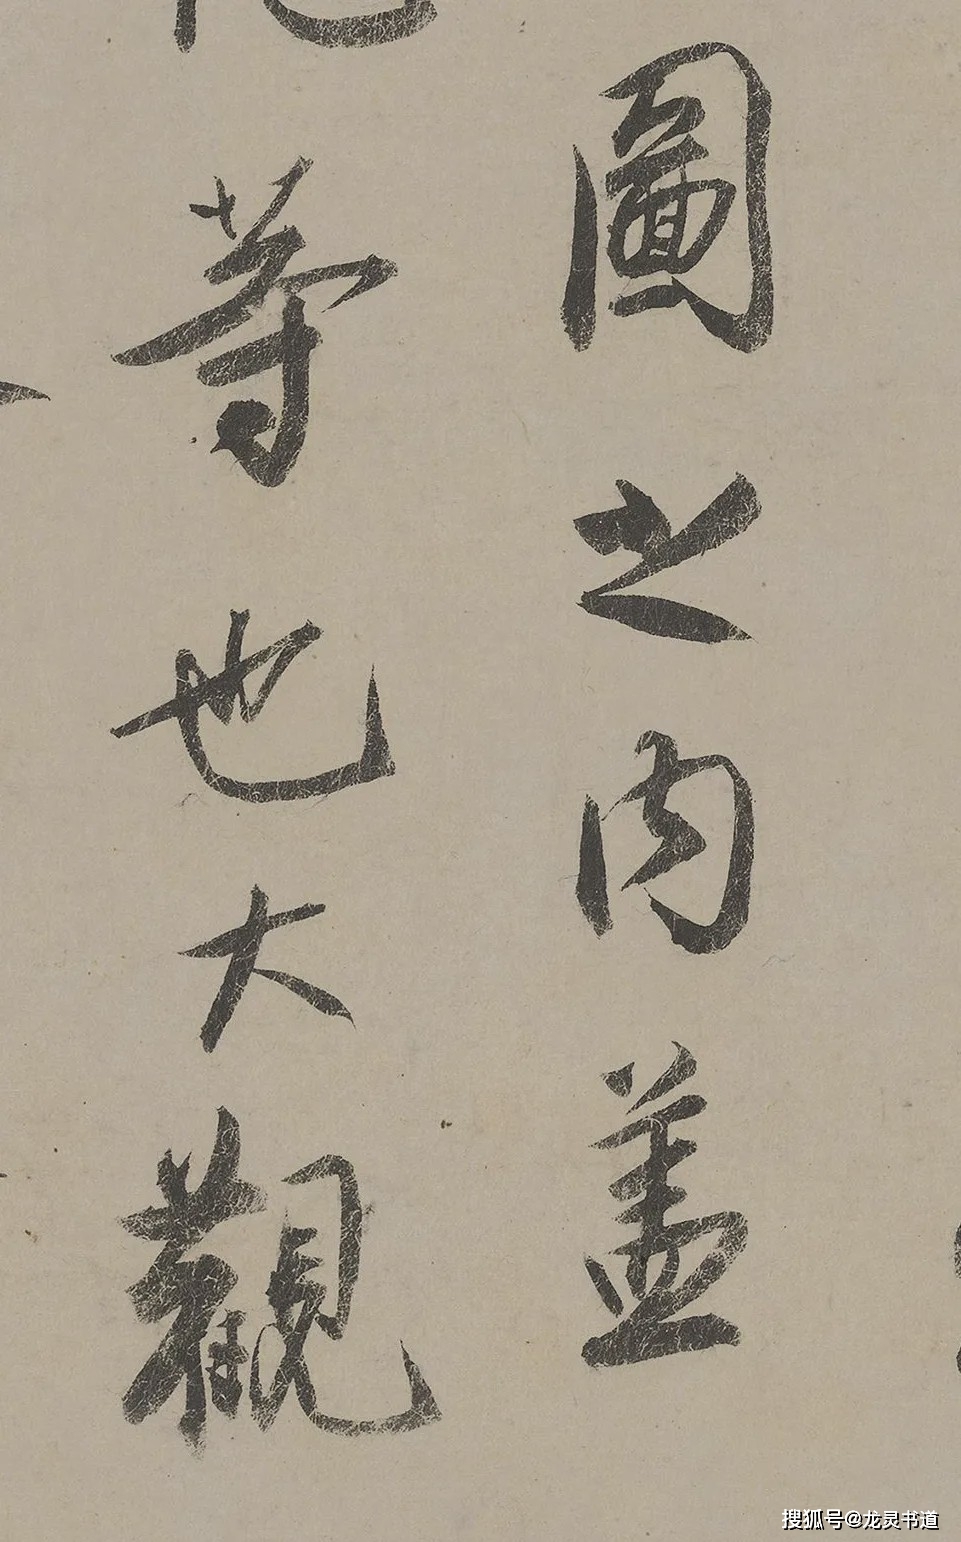 圖之内盖
等也大觀
搜狐号@龙灵书道